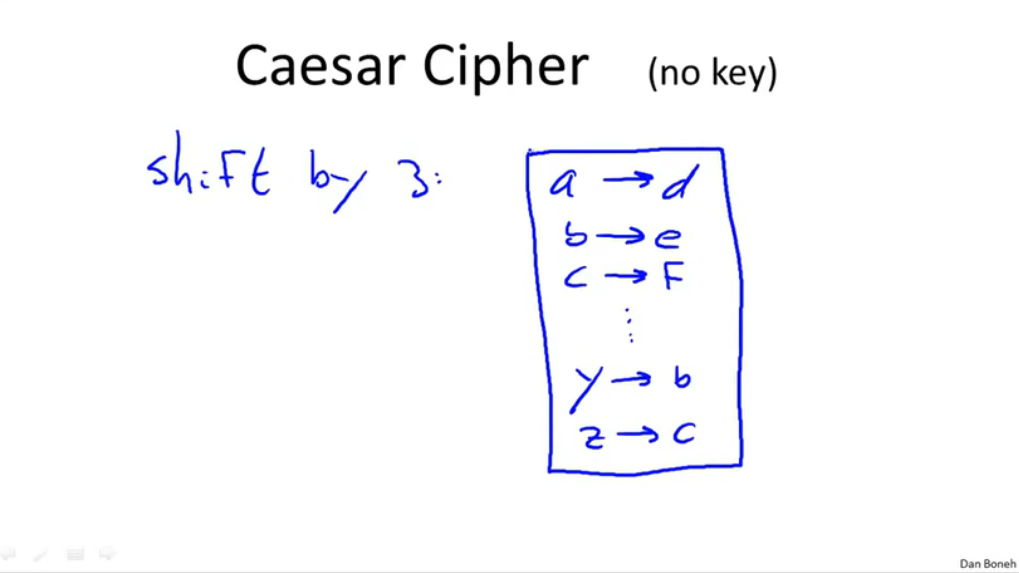 Caesar Cipher (no key)
shift by 3:
a → d
b → e
c → F
⋮
y → b
z → c
Dan Boneh